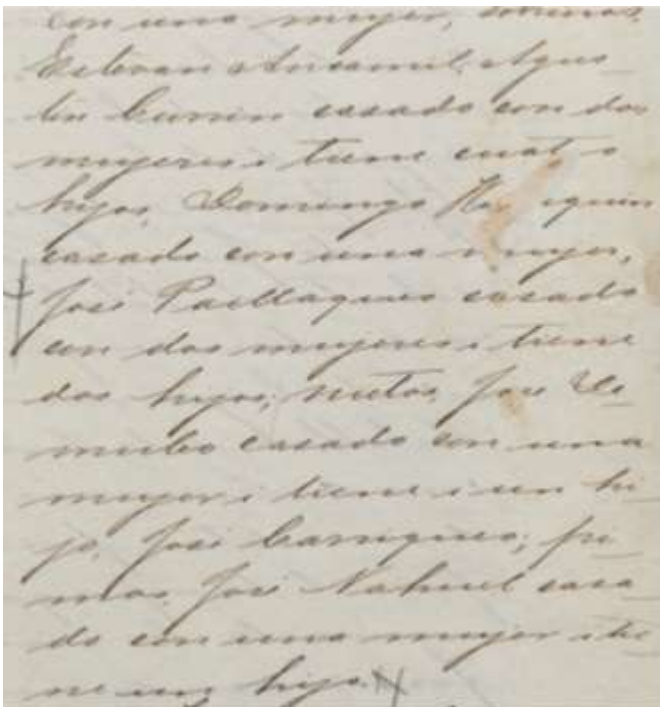 con una mujer, sobrinos
Esteban Ancamil, Agus_
tin Currin casado con dos
mujeres i tiene cuat o
hijos, Domingo
casado con una mujer,
José Paillaqueo casado
con dos mujeres i tiene
dos hijos; nietos, José
casado con una
mujer i tiene i un hi_
jo, José Carriqueo; pri_
mos José Nahuel casa_
do con una mujer i tie_
ne un hijo.